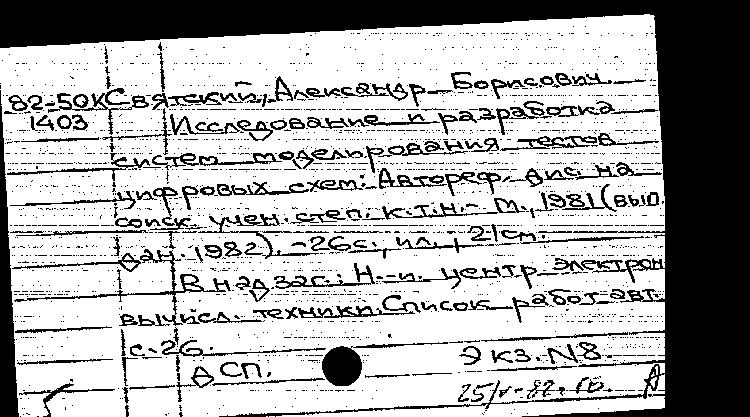 82-50К Святский, Александр Борисович.
1403 Исследование и разработка
систем моделирования тестов
цифровых схем: Автореф. дис. на
соиск. учен. степ. к.т.н. - М., 1981 (вып.
дан. 1982). - 26с., ил.; 21см.
В надзаг.: Н.-и. центр электрон.
вычисл. техники. Список работ авт.
с. 26.
ДСП. Экз. N8.
25/V-82. гв. А